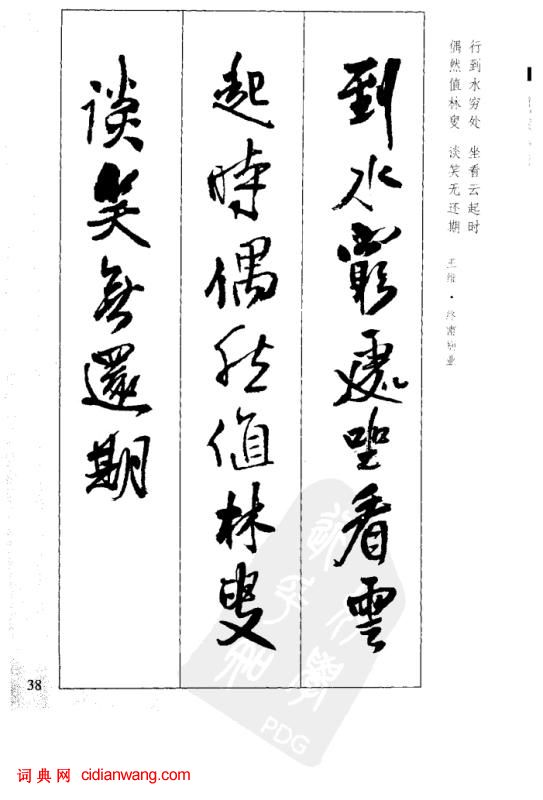 行到水穷处 坐看云起时
偶然值林叟 谈笑无还期 王维·终南别业
到水窮處坐看雲
起時偶然值林叟
談笑無還期
38
PDG
词典网 cidianwang.com